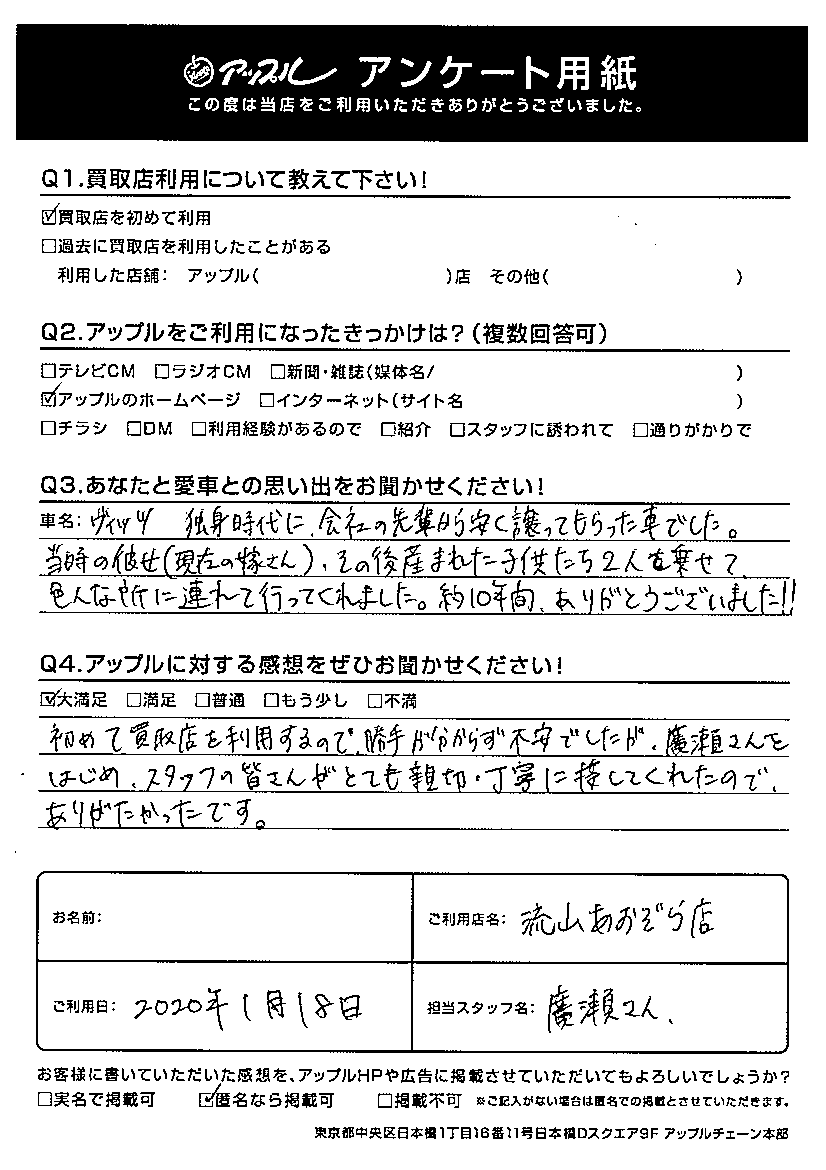 アップル アンケート用紙
この度は当店をご利用いただきありがとうございました。
Q1.買取店利用について教えて下さい!
☑買取店を初めて利用
□過去に買取店を利用したことがある
利用した店舗: アップル( )店 その他( )
Q2.アップルをご利用になったきっかけは?(複数回答可)
□テレビCM □ラジオCM □新聞・雑誌(媒体名/ )
☑アップルのホームページ □インターネット(サイト名 )
□チラシ □DM □利用経験があるので □紹介 □スタッフに誘われて □通りがかりで
Q3.あなたと愛車との思い出をお聞かせください!
車名: ヴィッツ 独身時代に、会社の先輩から安く譲ってもらった車でした。
当時の彼女(現在の嫁さん)、その後産まれた子供たち2人を乗せて、
色んな所に連れて行ってくれました。約10年間、ありがとうございました!!
Q4.アップルに対する感想をぜひお聞かせください!
☑大満足 □満足 □普通 □もう少し □不満
初めて買取店を利用するので、勝手が分からず不安でしたが、廣瀬さんを
はじめ、スタッフの皆さんがとても親切・丁寧に接してくれたので、
ありがたかったです。
お名前:
ご利用店名: 流山あおぞら店
ご利用日: 2020年1月18日
担当スタッフ名: 廣瀬さん、
お客様に書いていただいた感想を、アップルHPや広告に掲載させていただいてもよろしいでしょうか?
□実名で掲載可 ☑匿名なら掲載可 □掲載不可 ※ご記入がない場合は匿名での掲載とさせていただきます。
東京都中央区日本橋1丁目16番11号日本橋Dスクエア9F アップルチェーン本部